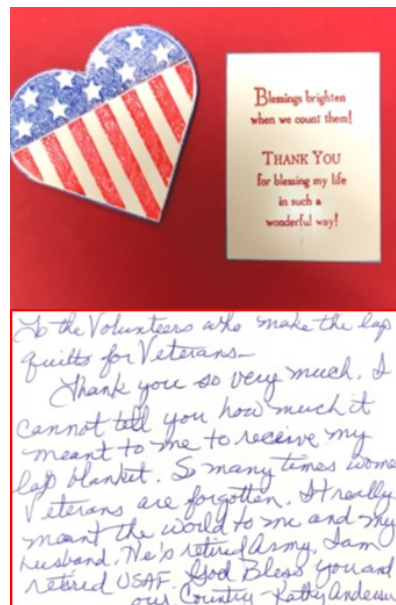 Blessings brighten
when we count them!
THANK YOU
for blessing my life
in such a
wonderful way!
To the Volunteers who make the lap
quilts for Veterans—
Thank you so very much. I
cannot tell you how much it
meant to me to receive my
lap blanket. So many times wome
Veterans are forgotten. It really
meant the world to me and my
husband. He's retired Army. I am
retired USAF. God Bless you and
our Country - Kathy Anderson